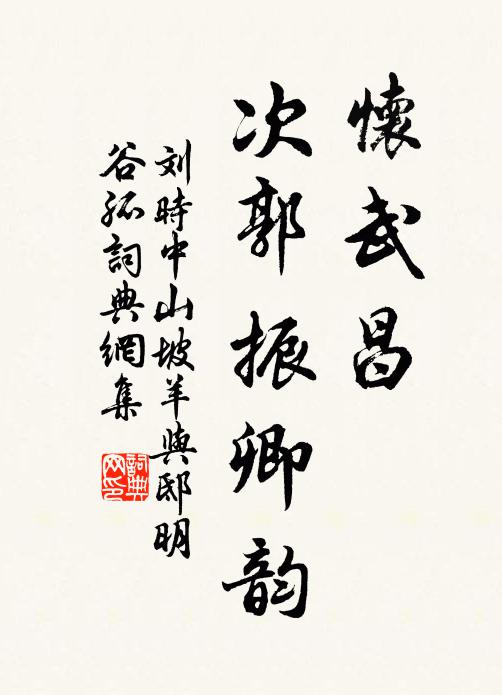 懷武昌
次郭振卿韵
刘時中山坡羊與邸明
谷孤詞典網集
詞典
网印